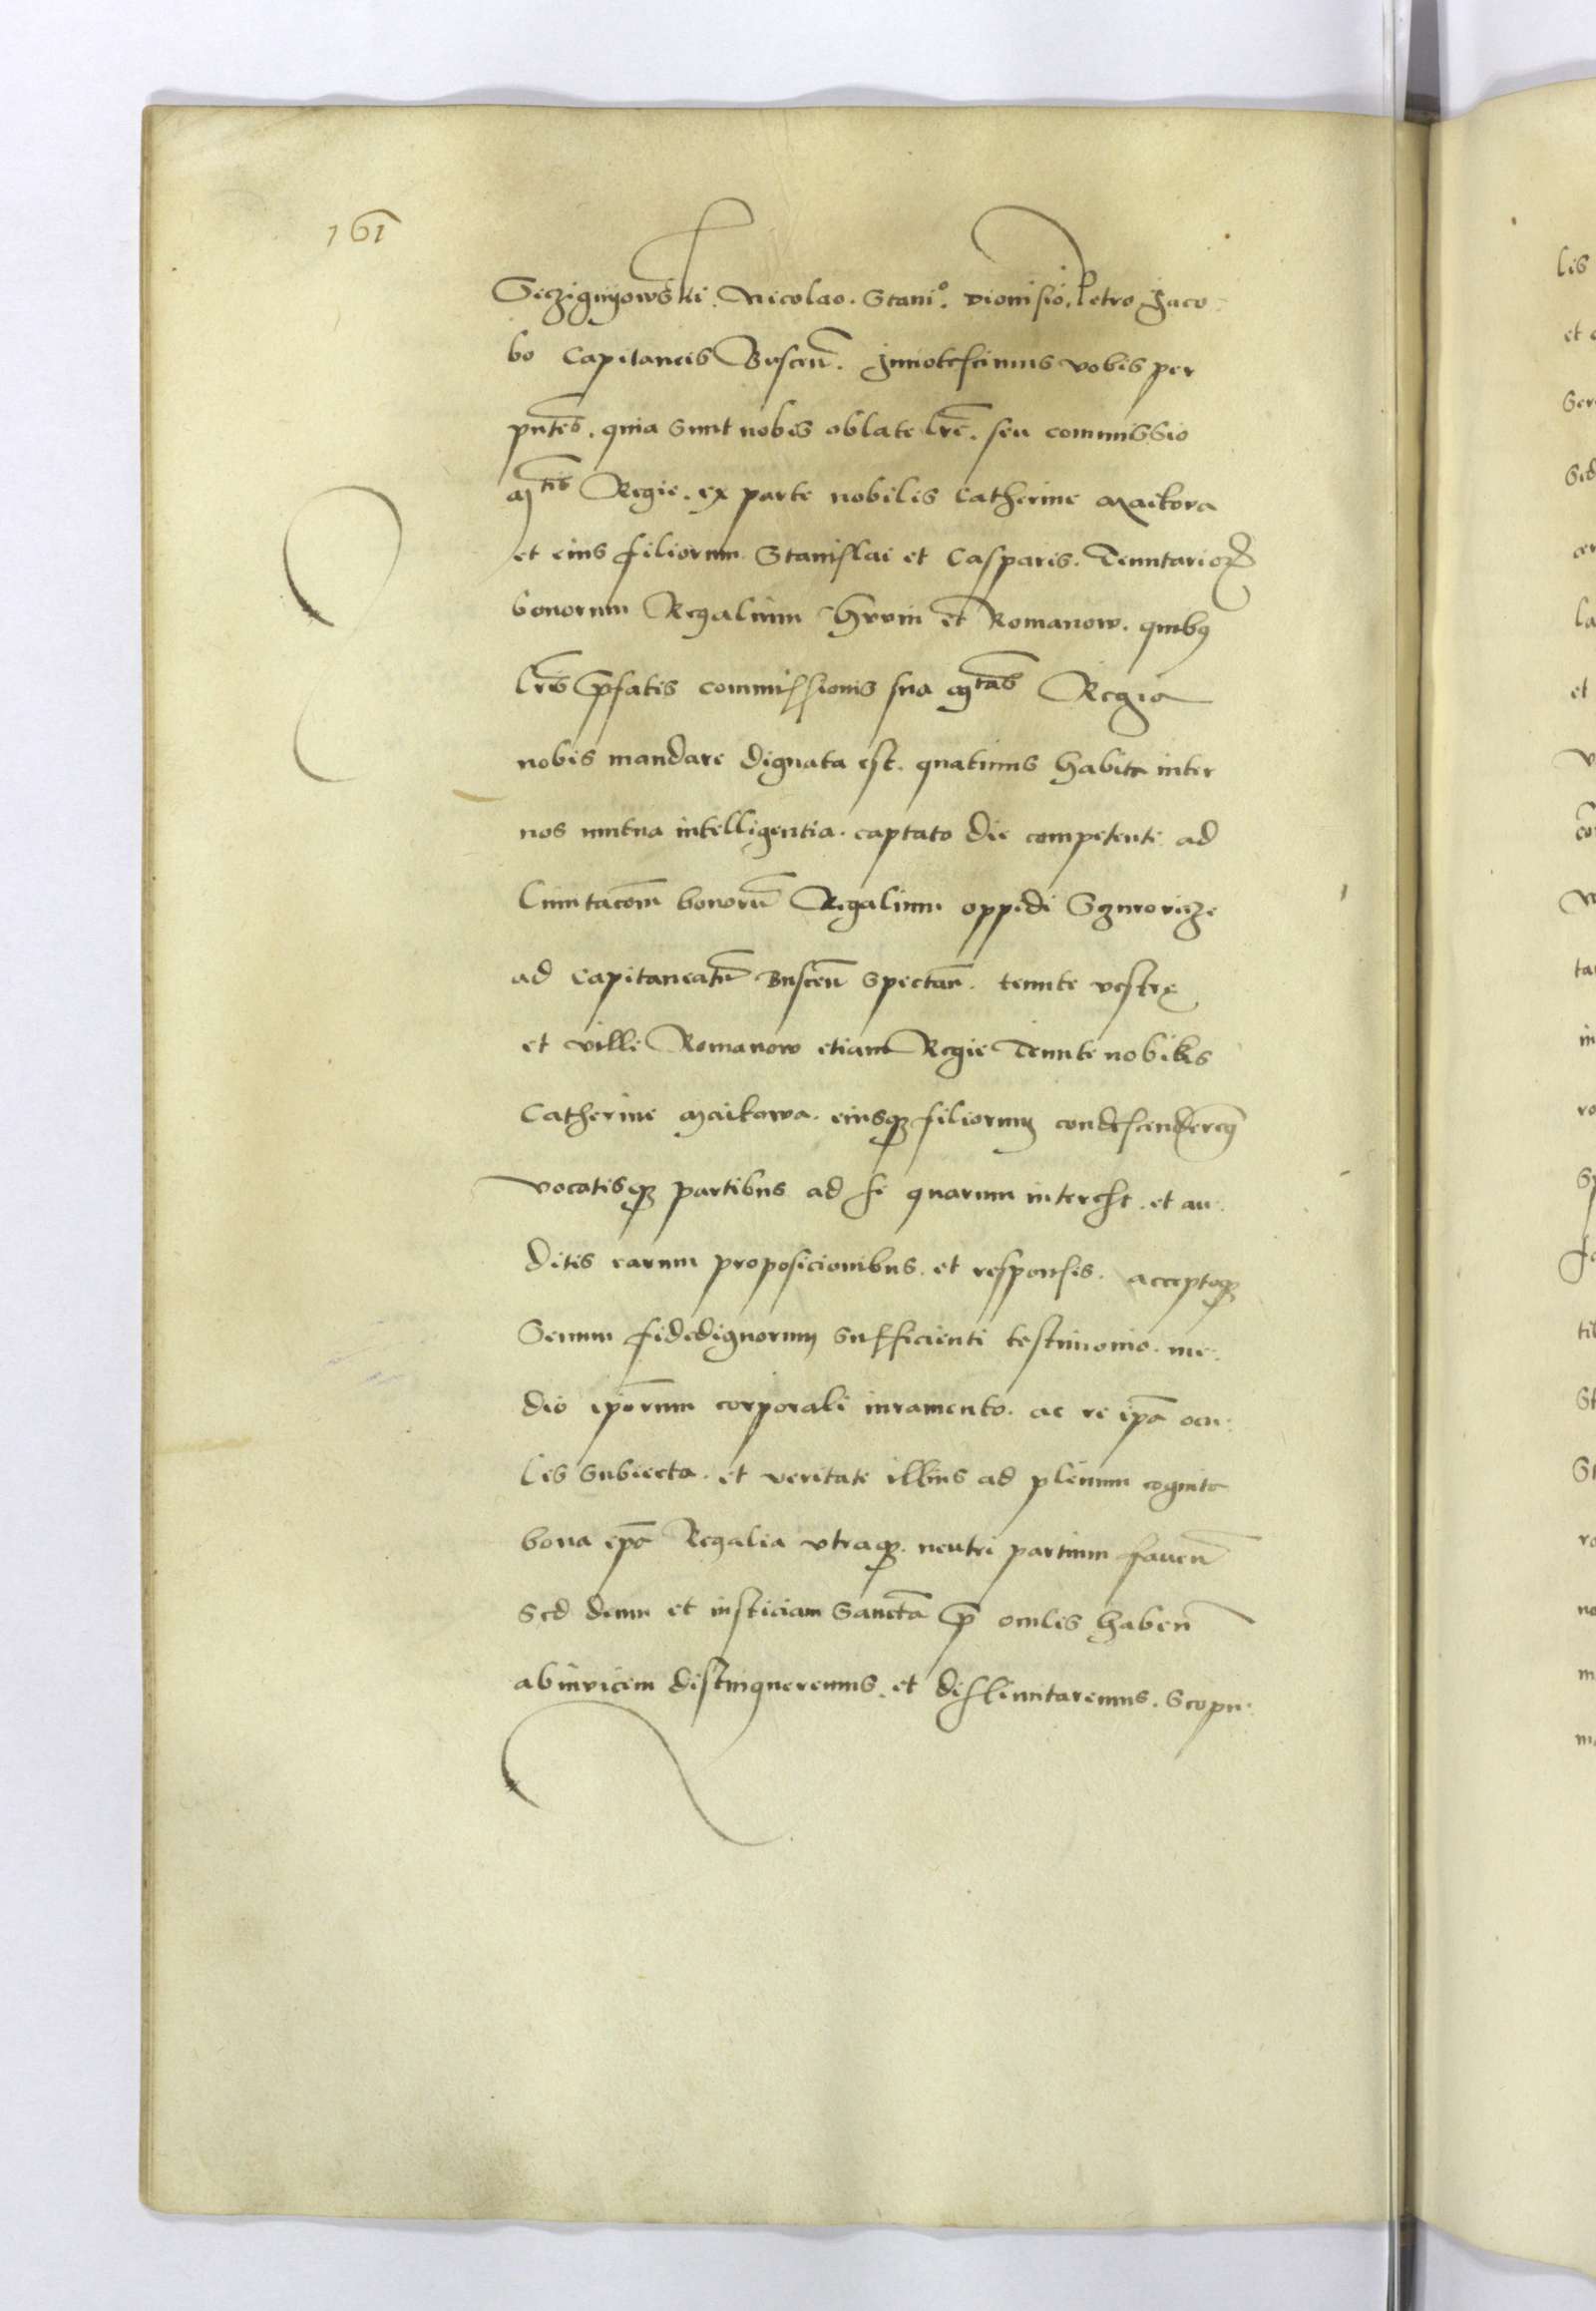 161
Sczignyowski. Nicolao. Stani⁰. Dionisio. Petro Jaco
bo Capitaneis Buscen̄. Innotescimus vobis per
pn̄tes. quia sunt nobis oblate lr̄e. seu commissio
M̄tis Regie. ex parte nobilis Catherine Maikova
et eius filiorum Stanislai et Casparis. Tenutarioꝝ
bonorum Regalium et Romanow. quibꝰ
lr̄is p̄fatis commissionis sua M̄tas Regia
nobis mandare dignata est. quatinus habita inter
nos mutua intelligentia. captato die competente ad
limitacōem bonorū Regalium oppidi
ad Capitaneatū Buscen̄ spectan̄. tenute vestrę
et ville Romanow etiam Regie Tenute nobilis
Catherine Maikowa. eiusqꝫ filiorum condescenderemꝰ
vocatisqꝫ partibus ad se quarum interest. et au
ditis earum proposicionibus. et responsis. acceptoqꝫ
Senum fidedignorum sufficienti testimonio. me
dio ip̄orum corporali iuramento. ac re ip̄a ocu
lis subiecta. et veritate illius ad plenum cognita
bona ip̄a Regalia vtraqꝫ. neutri partium fauen̄
sed deum et iusticiam sanctā p̄ oculis haben̄
abinvicem distinqueremus. et dislimitaremus. Scopu